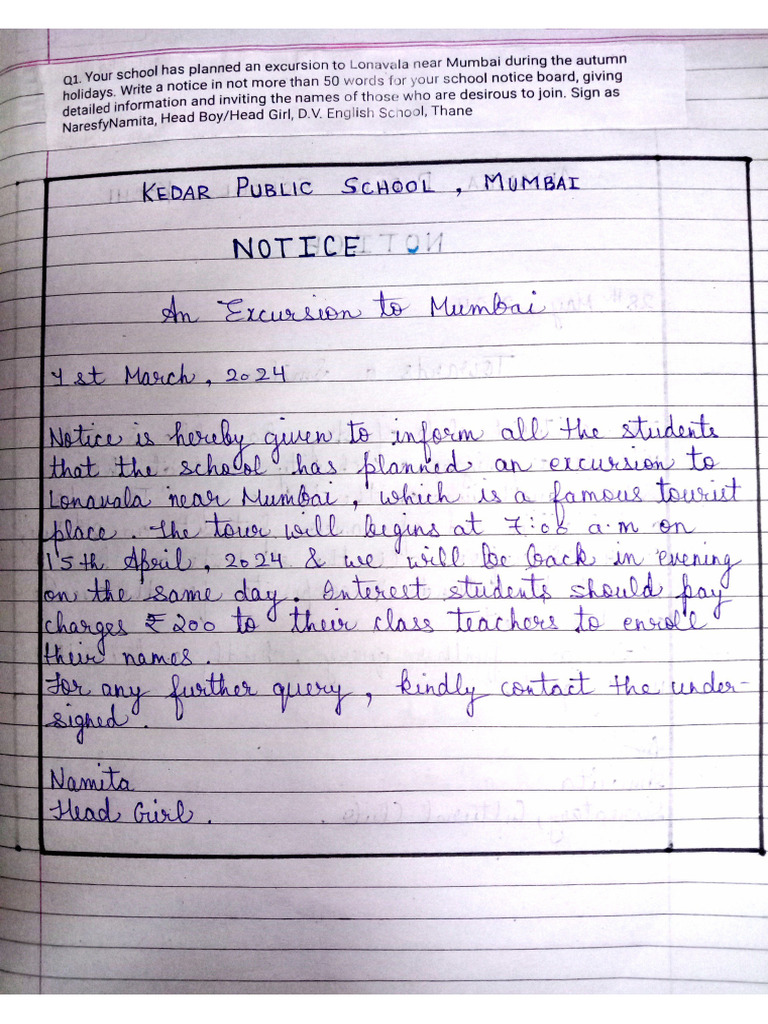 Q1. Your school has planned an excursion to Lonavala near Mumbai during the autumn
holidays. Write a notice in not more than 50 words for your school notice board, giving
detailed information and inviting the names of those who are desirous to join. Sign as
NaresfyNamita, Head Boy/Head Girl, D.V. English School, Thane
KEDAR PUBLIC SCHOOL, MUMBAI
NOTICE
An Excursion to Mumbai
1st March, 2024
Notice is hereby given to inform all the students
that the school has planned an excursion to
Lonavala near Mumbai, which is a famous tourist
place. The tour will begins at 7:06 a.m on
15th April, 2024 & we will be back in evening
on the same day. Interest students should pay
charges ₹ 200 to their class teachers to enroll
their names.
For any further query, kindly contact the under-
signed.
Namita
Head Girl.